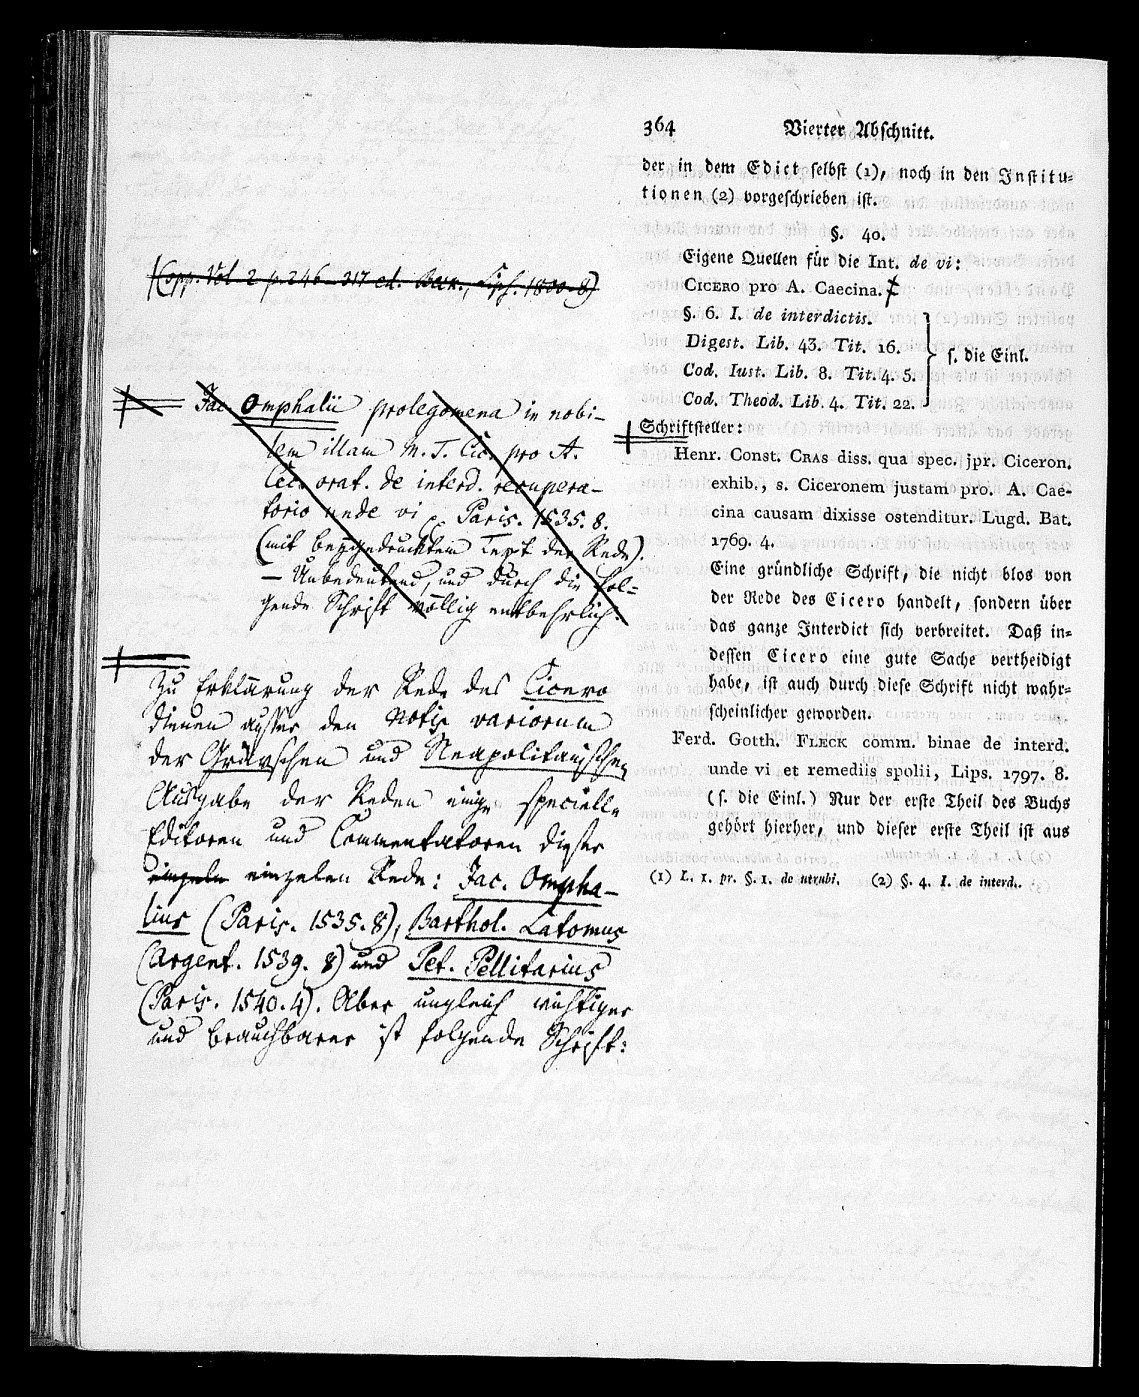 (Opp. Vol. 2 p. 246-317 ed. Beck., Lips. 1800. 8)
Jac. Omphalii prolegomena in nobi-
lem illam M. T. Cic. pro A.
Cec. orat. de interd. recupera-
torio unde vi, Paris. 1535. 8.
(mit beygedrucktem Text der Rede).
— Unbedeutend, und durch die fol-
gende Schrift völlig entbehrlich.
Zu Erklärung der Rede des Cicero
dienen ausser den Notis variorum
der Grävschen und Neapolitanischen
Ausgabe der Reden einige specielle
Editoren und Commentatoren dieser
einzeln einzelnen Rede: Jac. Ompha-
lius (Paris. 1535. 8), Barthol. Latomus
(Argent. 1539. 8) und Pet. Pellitarius
(Paris. 1540. 4). Aber ungleich wichtiger
und brauchbarer ist folgende Schrift:
364 Vierter Abschnitt.
der in dem Edict selbst (1), noch in den Institu-
tionen (2) vorgeschrieben ist.
§. 40.
Eigene Quellen für die Int. de vi:
CICERO pro A. Caecina.
§. 6. I. de interdictis.
Digest. Lib. 43. Tit. 16.
Cod. Iust. Lib. 8. Tit. 4. 5.
Cod. Theod. Lib. 4. Tit. 22.
s. die Einl.
Schriftsteller:
Henr. Const. CRAS diss. qua spec. jpr. Ciceron.
exhib., s. Ciceronem justam pro. A. Cae-
cina causam dixisse ostenditur. Lugd. Bat.
1769. 4.
Eine gründliche Schrift, die nicht blos von
der Rede des Cicero handelt, sondern über
das ganze Interdict sich verbreitet. Daß in-
dessen Cicero eine gute Sache vertheidigt
habe, ist auch durch diese Schrift nicht wahr-
scheinlicher geworden.
Ferd. Gotth. FLECK comm. binae de interd.
unde vi et remediis spolii, Lips. 1797. 8.
(s. die Einl.) Nur der erste Theil des Buchs
gehört hierher, und dieser erste Theil ist aus
(1) L. 1. pr. §. 1. de utrubi. (2) §. 4. I. de interd.